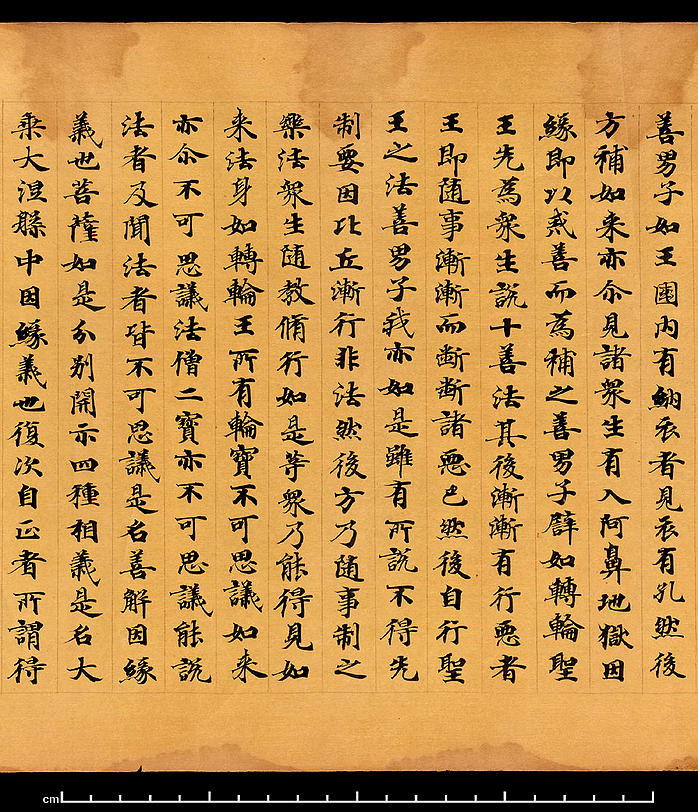 善男子如王國内有納衣者見衣有孔然後
方補如来亦尒見諸衆生有入阿鼻地獄因
緣即以戒善而為補之善男子辟如轉輪聖
王先為衆生說十善法其後漸漸有行惡者
王即随事漸漸而断断諸惡已然後自行聖
王之法善男子我亦如是雖有所說不得先
制要因比丘漸行非法然後方乃随事制之
樂法衆生随教脩行如是等衆乃能得見如
来法身如轉輪王所有輪寶不可思議如来
亦尒不可思議法僧二寶亦不可思議能說
法者及聞法者皆不可思議是名善解因緣
義也菩薩如是分别開示四種相義是名大
乘大涅槃中因緣義也復次自正者所謂得
cm